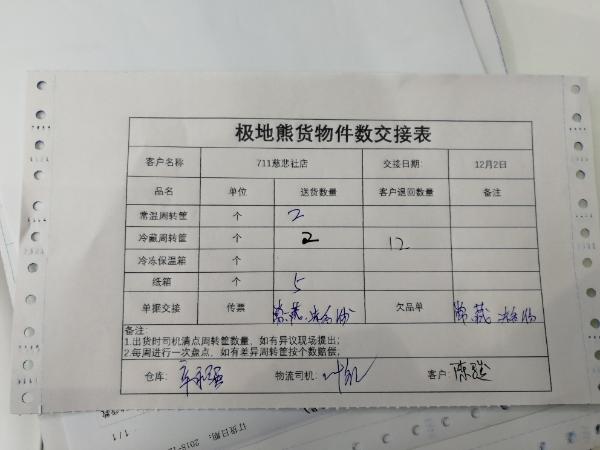 极地熊货物件数交接表
客户名称 711慈悲社店 交接日期: 12月2日
品名 单位 送货数量 客户退回数量 备注
常温周转筐 个 2
冷藏周转筐 个 2 12
冷冻保温箱 个
纸箱 个 5
单据交接 传票 欠品单
备注:
1.出货时司机清点周转筐数量,如有异议现场提出;
2.每周进行一次盘点,如有差异周转筐按个数赔偿,
仓库: 物流司机: 客户:
订货日期: 2018-12
1/1